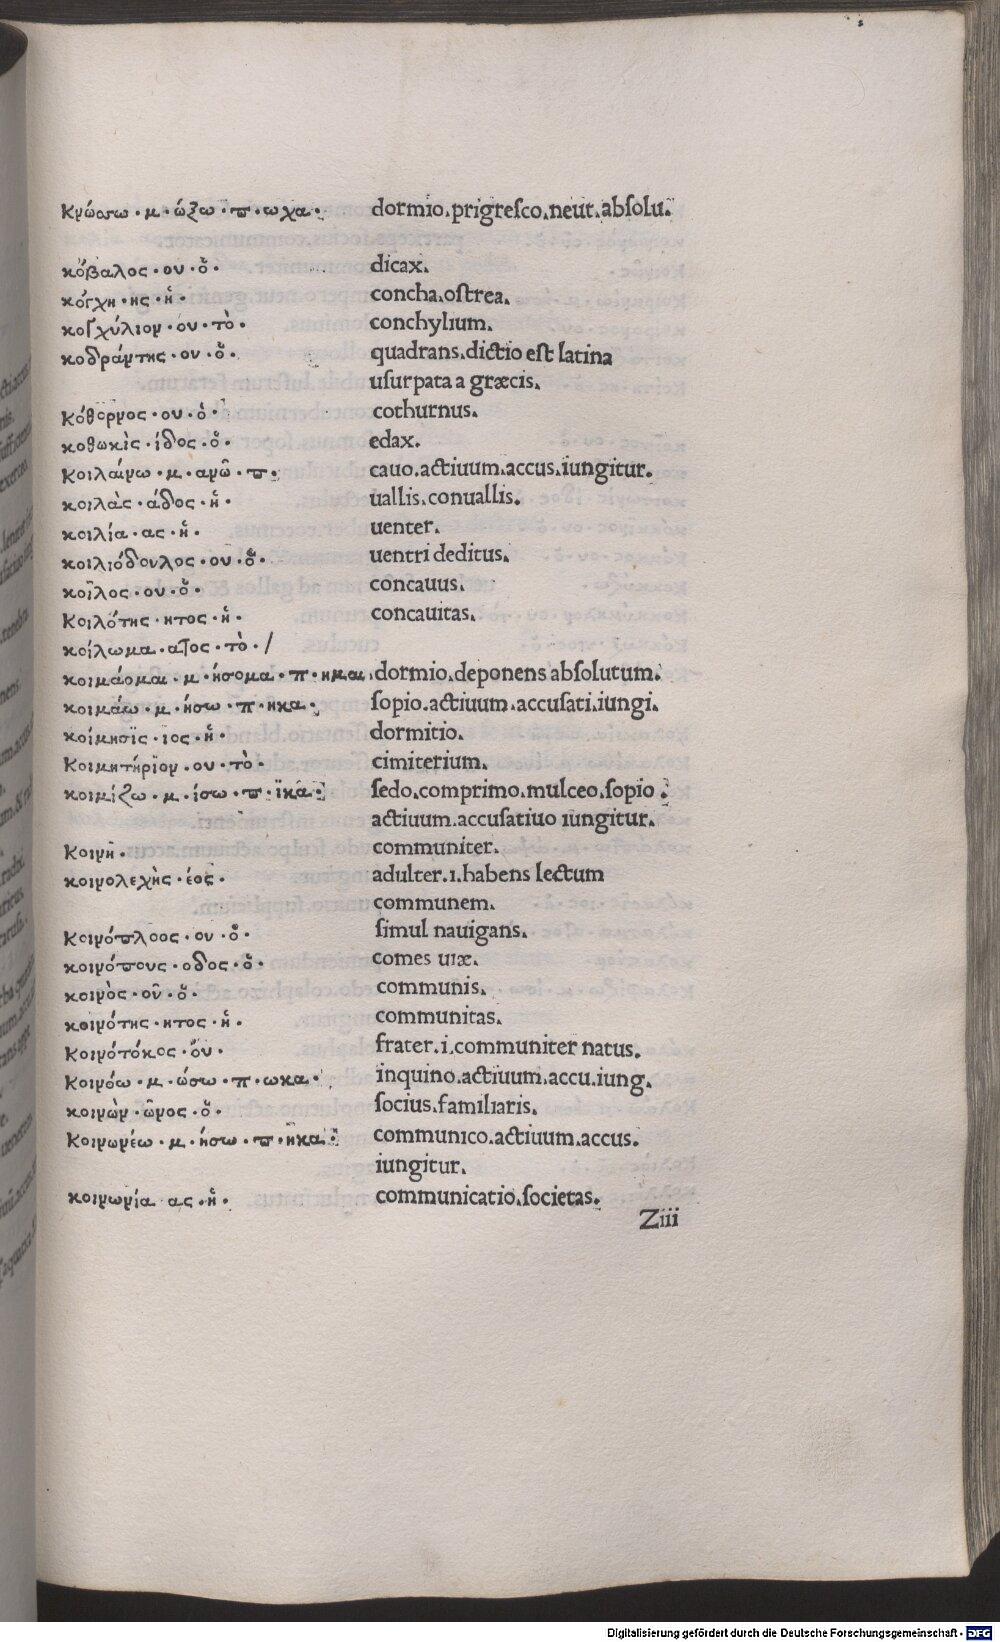 κνώσσω·μ·ώξω·π·ωχα· dormio.prigresco.neut.absolu.
κόβαλος·ου·ὁ· dicax.
κόγχη·ης·ἡ· concha.ostrea.
κογχύλιον·ου·τὸ· conchylium.
κοδράντης·ου·ὁ· quadrans.dictio est latina
usurpata a græcis.
κόθορνος·ου·ὁ· cothurnus.
κοθωκὶς·ίδος·ὁ· edax.
κοιλαίνω·μ·ανῶ·π· cauo.actiuum.accus.iungitur.
κοιλὰς·άδος·ἡ· uallis.conuallis.
κοιλία·ας·ἡ· uenter.
κοιλιόδουλος·ου·ὁ· uentri deditus.
κοῖλος·ου·ὁ· concauus.
κοιλότης·ητος·ἡ· concauitas.
κοίλωμα·ατος·τὸ·/
κοιμάομαι·μ·ήσομαι·π·ημαι· dormio.deponens absolutum.
κοιμάω·μ·ήσω·π·ηκα· sopio.actiuum.accusati.iungi.
κοίμησις·ιος·ἡ· dormitio.
κοιμητήριον·ου·τὸ· cimiterium.
κοιμίζω·μ·ίσω·π·ικα· sedo.comprimo.mulceo.sopio.
actiuum.accusatiuo iungitur.
κοινῆ· communiter.
κοινολεχὴς·έος· adulter.i.habens lectum
communem.
κοινόπλοος·ου·ὁ· simul nauigans.
κοινόπους·οδος·ὁ· comes uiæ.
κοινὸς·οῦ·ὁ· communis.
κοινότης·ητος·ἡ· communitas.
κοινότόκος·ὁυ· frater.i.communiter natus.
κοινόω·μ·ώσω·π·ωκα· inquino.actiuum.accu.iung.
κοινὼν·ῶνος·ὁ· socius.familiaris.
κοινωνέω·μ·ήσω·π·ηκα· communico.actiuum.accus.
iungitur.
κοινωνία ας·ἡ· communicatio.societas.
Ziii
Digitalisierung gefördert durch die Deutsche Forschungsgemeinschaft - DFG